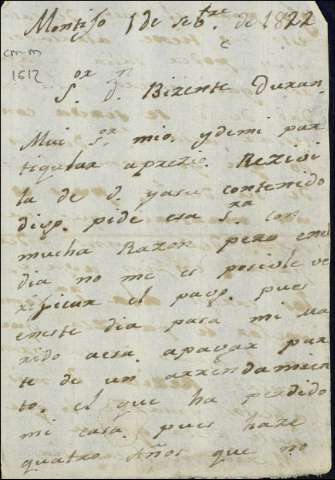 Montijo 1 de Setbre de 1822
cm-m
1612
Sor Dn Bizente Duran
Mui Sor mio, y demi par
tiqular aprezio. Rezivi
la de V. yasu contenido
digo. pide esa Sra con
mucha Razon pero enel
dia no me es posivle ve
rificar el pago. pues
eneste dia pasa mi ma
rido aesa. apagar par
te de un arrendamien
to, el que ha perdido
mi casa. pues haze
quatro Años que no